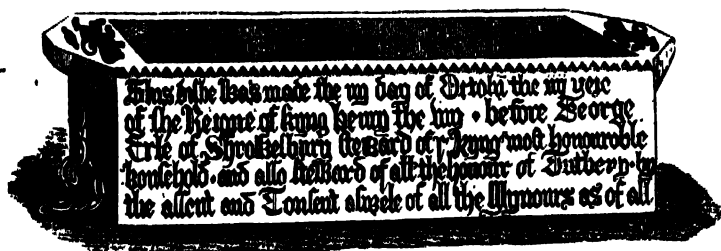 This dishe was made the iiij day of Octobr the iiij yere
of the Reigne of kyng henry the viij · before George
Erle of Shrowesbury Steward of ye kyng most honourable
household · and also Steward of all the honour of Tutbery · by
the assent and Consent aswele of all the Mynours as of all